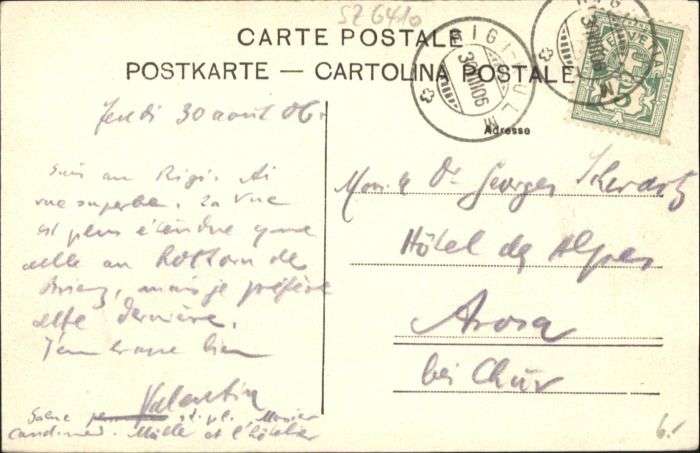 SZ 6410
CARTE POSTALE
POSTKARTE — CARTOLINA POSTALE
RIGI-KULM
30 VIII 06
HELVETIA
5
Adresse
Jeudi 30 août 06.
Suis au Rigi. Ai
vue superbe. La vue
est plus étendue que
celle au Rothorn de
Brienz, mais je préfère
cette dernière.
J'embrasse bien
Valentin
Salue st. pl. Monsier
cand. med. Mödle et l'hôtelier
Mons. le Dr. Georges
Hôtel des Alpes
Arosa
bei Chur
6.-